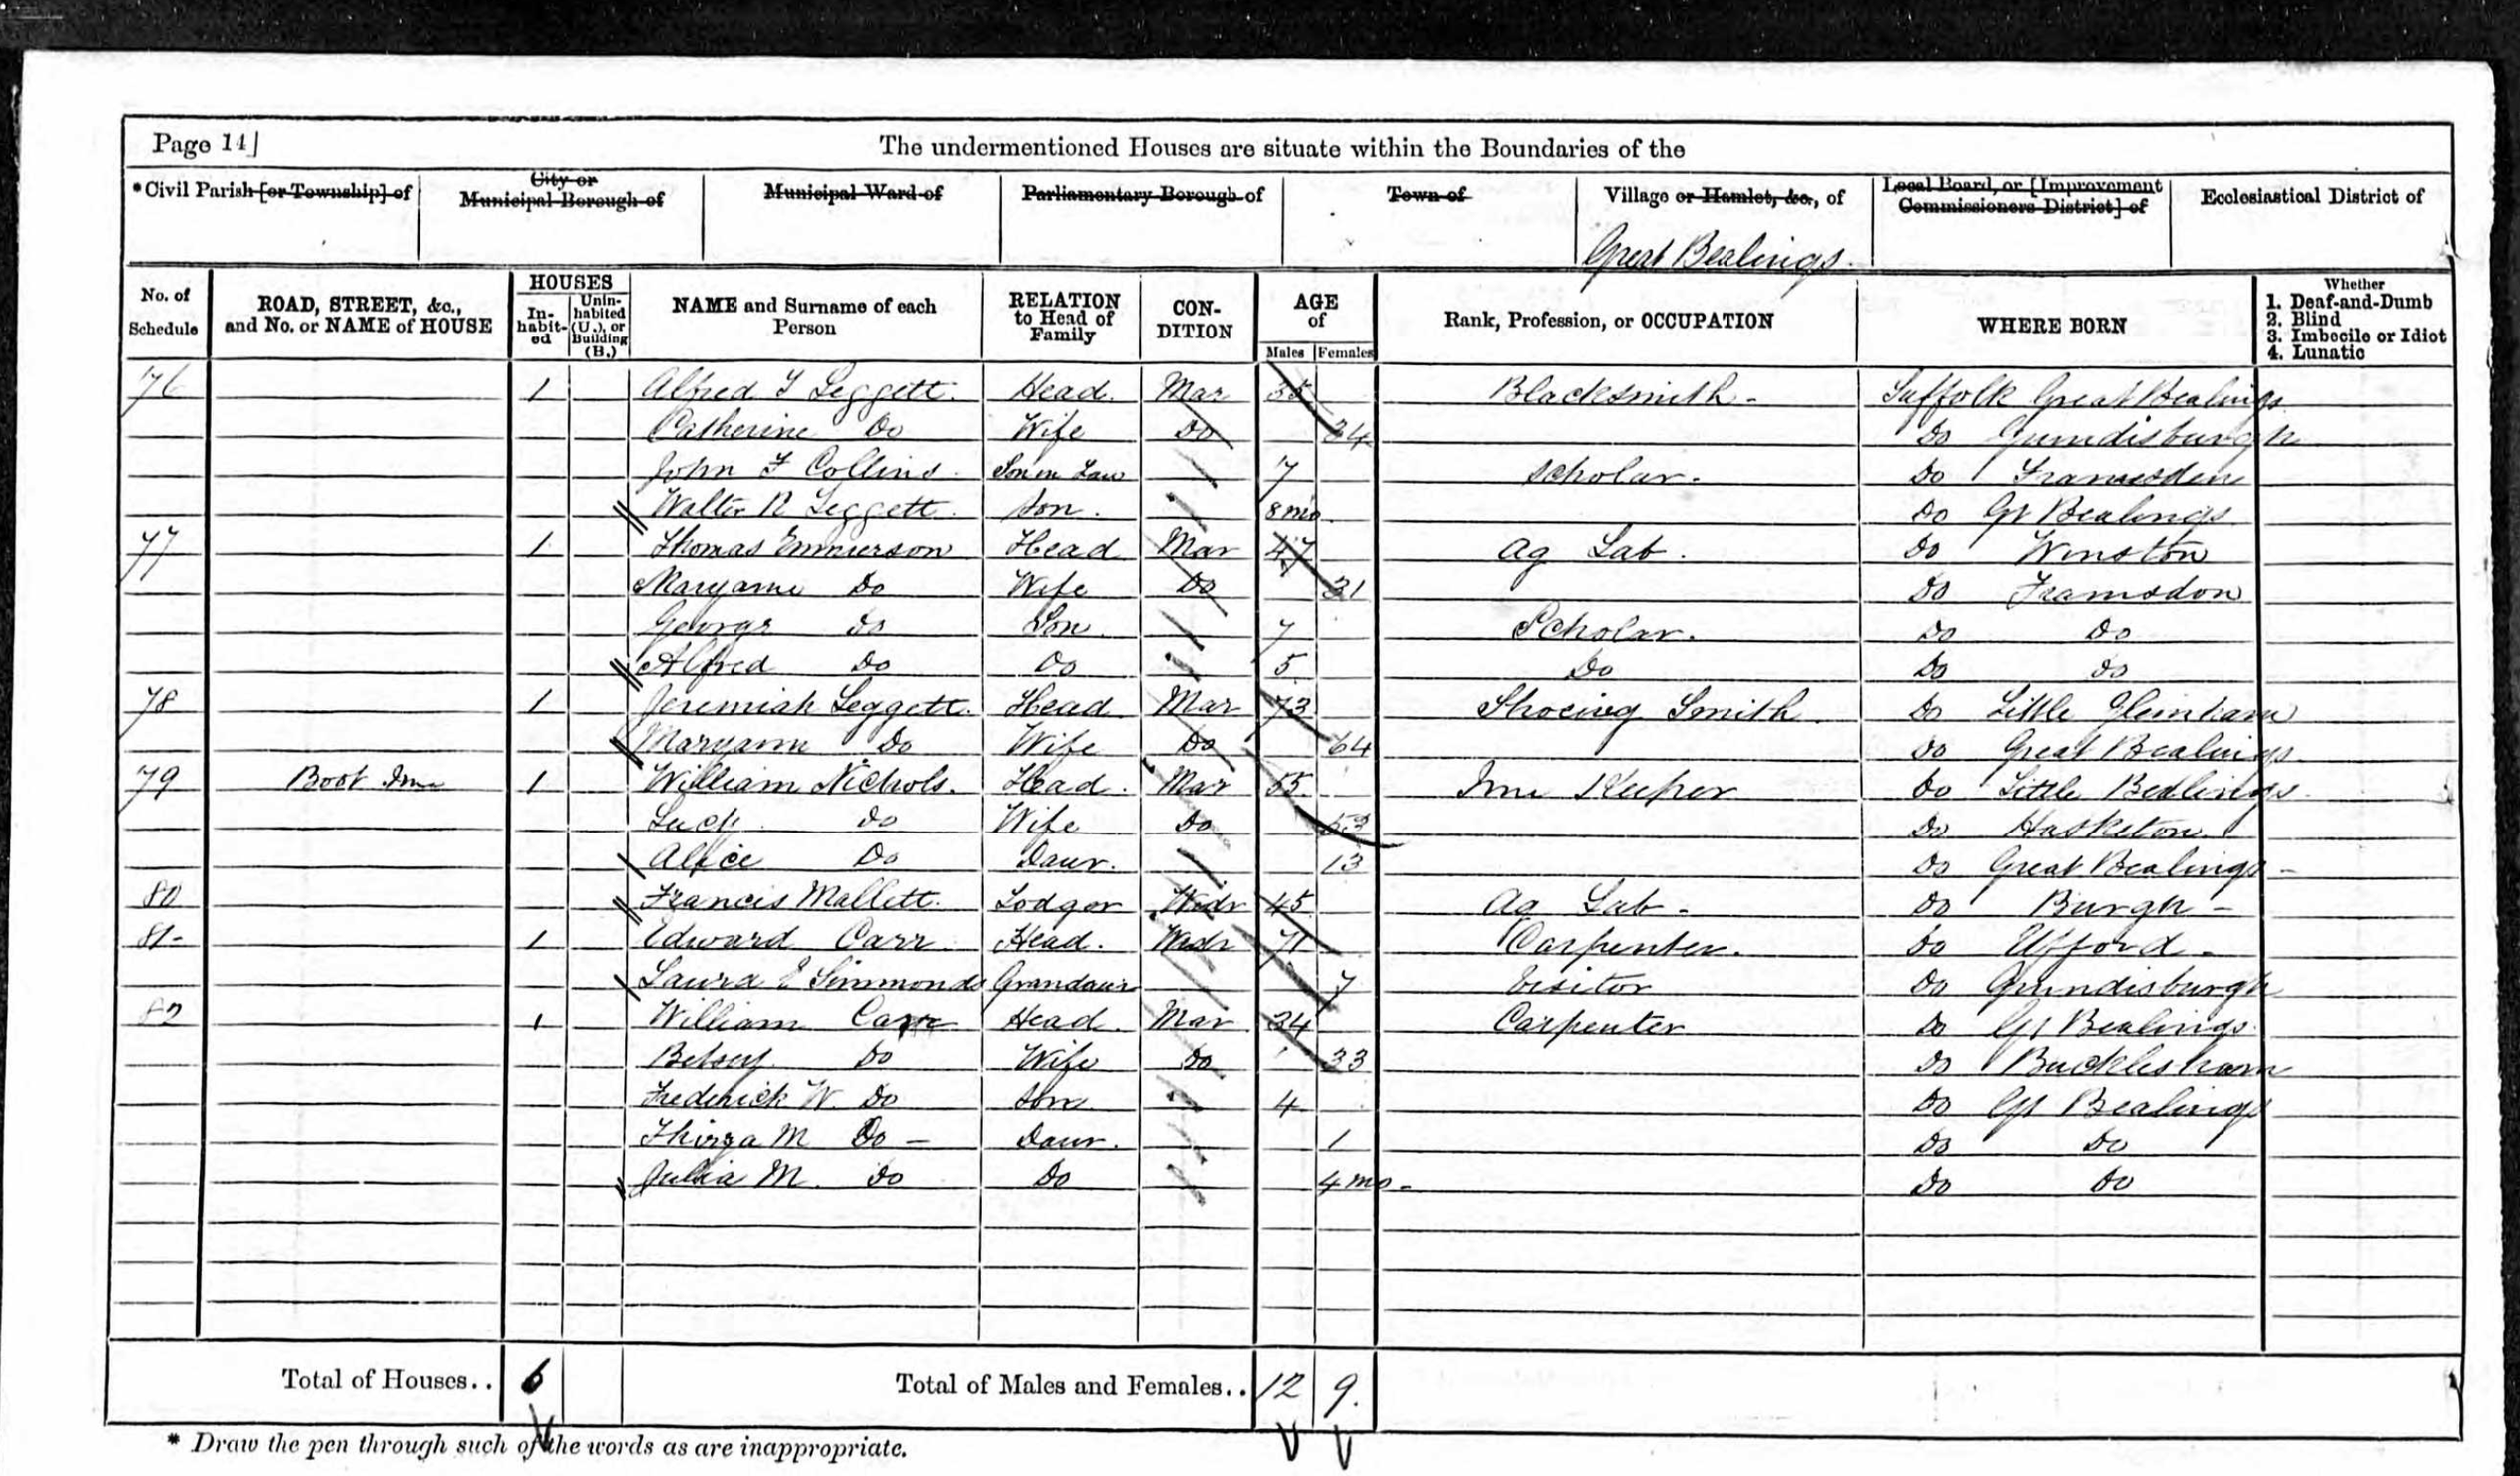 Page 14]
The undermentioned Houses are situate within the Boundaries of the
*Civil Parish [or Township] of
City or Municipal Borough of
Municipal Ward of
Parliamentary Borough of
Town of
Village or Hamlet, &c., of
Local Board, or [Improvement Commissioners District] of
Ecclesiastical District of
Great Bealings
No. of Schedule
ROAD, STREET, &c., and No. or NAME of HOUSE
HOUSES
In-habit-ed
Unin-habited (U.), or Building (B.)
NAME and Surname of each Person
RELATION to Head of Family
CON-DITION
AGE of
Males Females
Rank, Profession, or OCCUPATION
WHERE BORN
Whether
1. Deaf-and-Dumb
2. Blind
3. Imbecile or Idiot
4. Lunatic
76 1 Alfred Leggett Head Mar 35 Blacksmith - Suffolk Great Bealings
Catherine Do Wife Do 34 Do Grundisburgh
John F Collins Son in Law 7 Scholar. Do Framsden
Walter R Leggett Son. 8 mo Do Gt Bealings
77 1 Thomas Emmerson Head Mar 47 Ag Lab. Do Winston
Maryann Do Wife Do 31 Do Framsdon
George Do Son 7 Scholar. Do Do
Alfred Do Do 5 Do Do Do
78 1 Jeremiah Leggett Head Mar 73 Shoeing Smith Do Little Glemham
Maryann Do Wife Do 64 Do Great Bealings
79 Boot Inn 1 William Nichols. Head. Mar 55 Inn Keeper Do Little Bealings
Do Wife Do 53 Do Hasketon
Alice Do Daur. 13 Do Great Bealings -
80 Francis Mallett Lodger Widr 45 Ag Lab - Do Burgh -
81 - 1 Edward Carr Head. Widr 71 Carpenter. Do Ufford -
Laura E Simmonds Grandaur 7 Visitor Do Grundisburgh
82 1 William Carr Head. Mar 34 Carpenter Do Gt Bealings
Betsey Do Wife Do 33 Do Bucklesham
Frederick W. Do Son 4 Do Gt Bealings
Thirza M Do - Daur. 1 Do Do
Julia M. Do Do 4 mo - Do Do
Total of Houses.. 6 Total of Males and Females.. 12 9.
* Draw the pen through such of the words as are inappropriate.